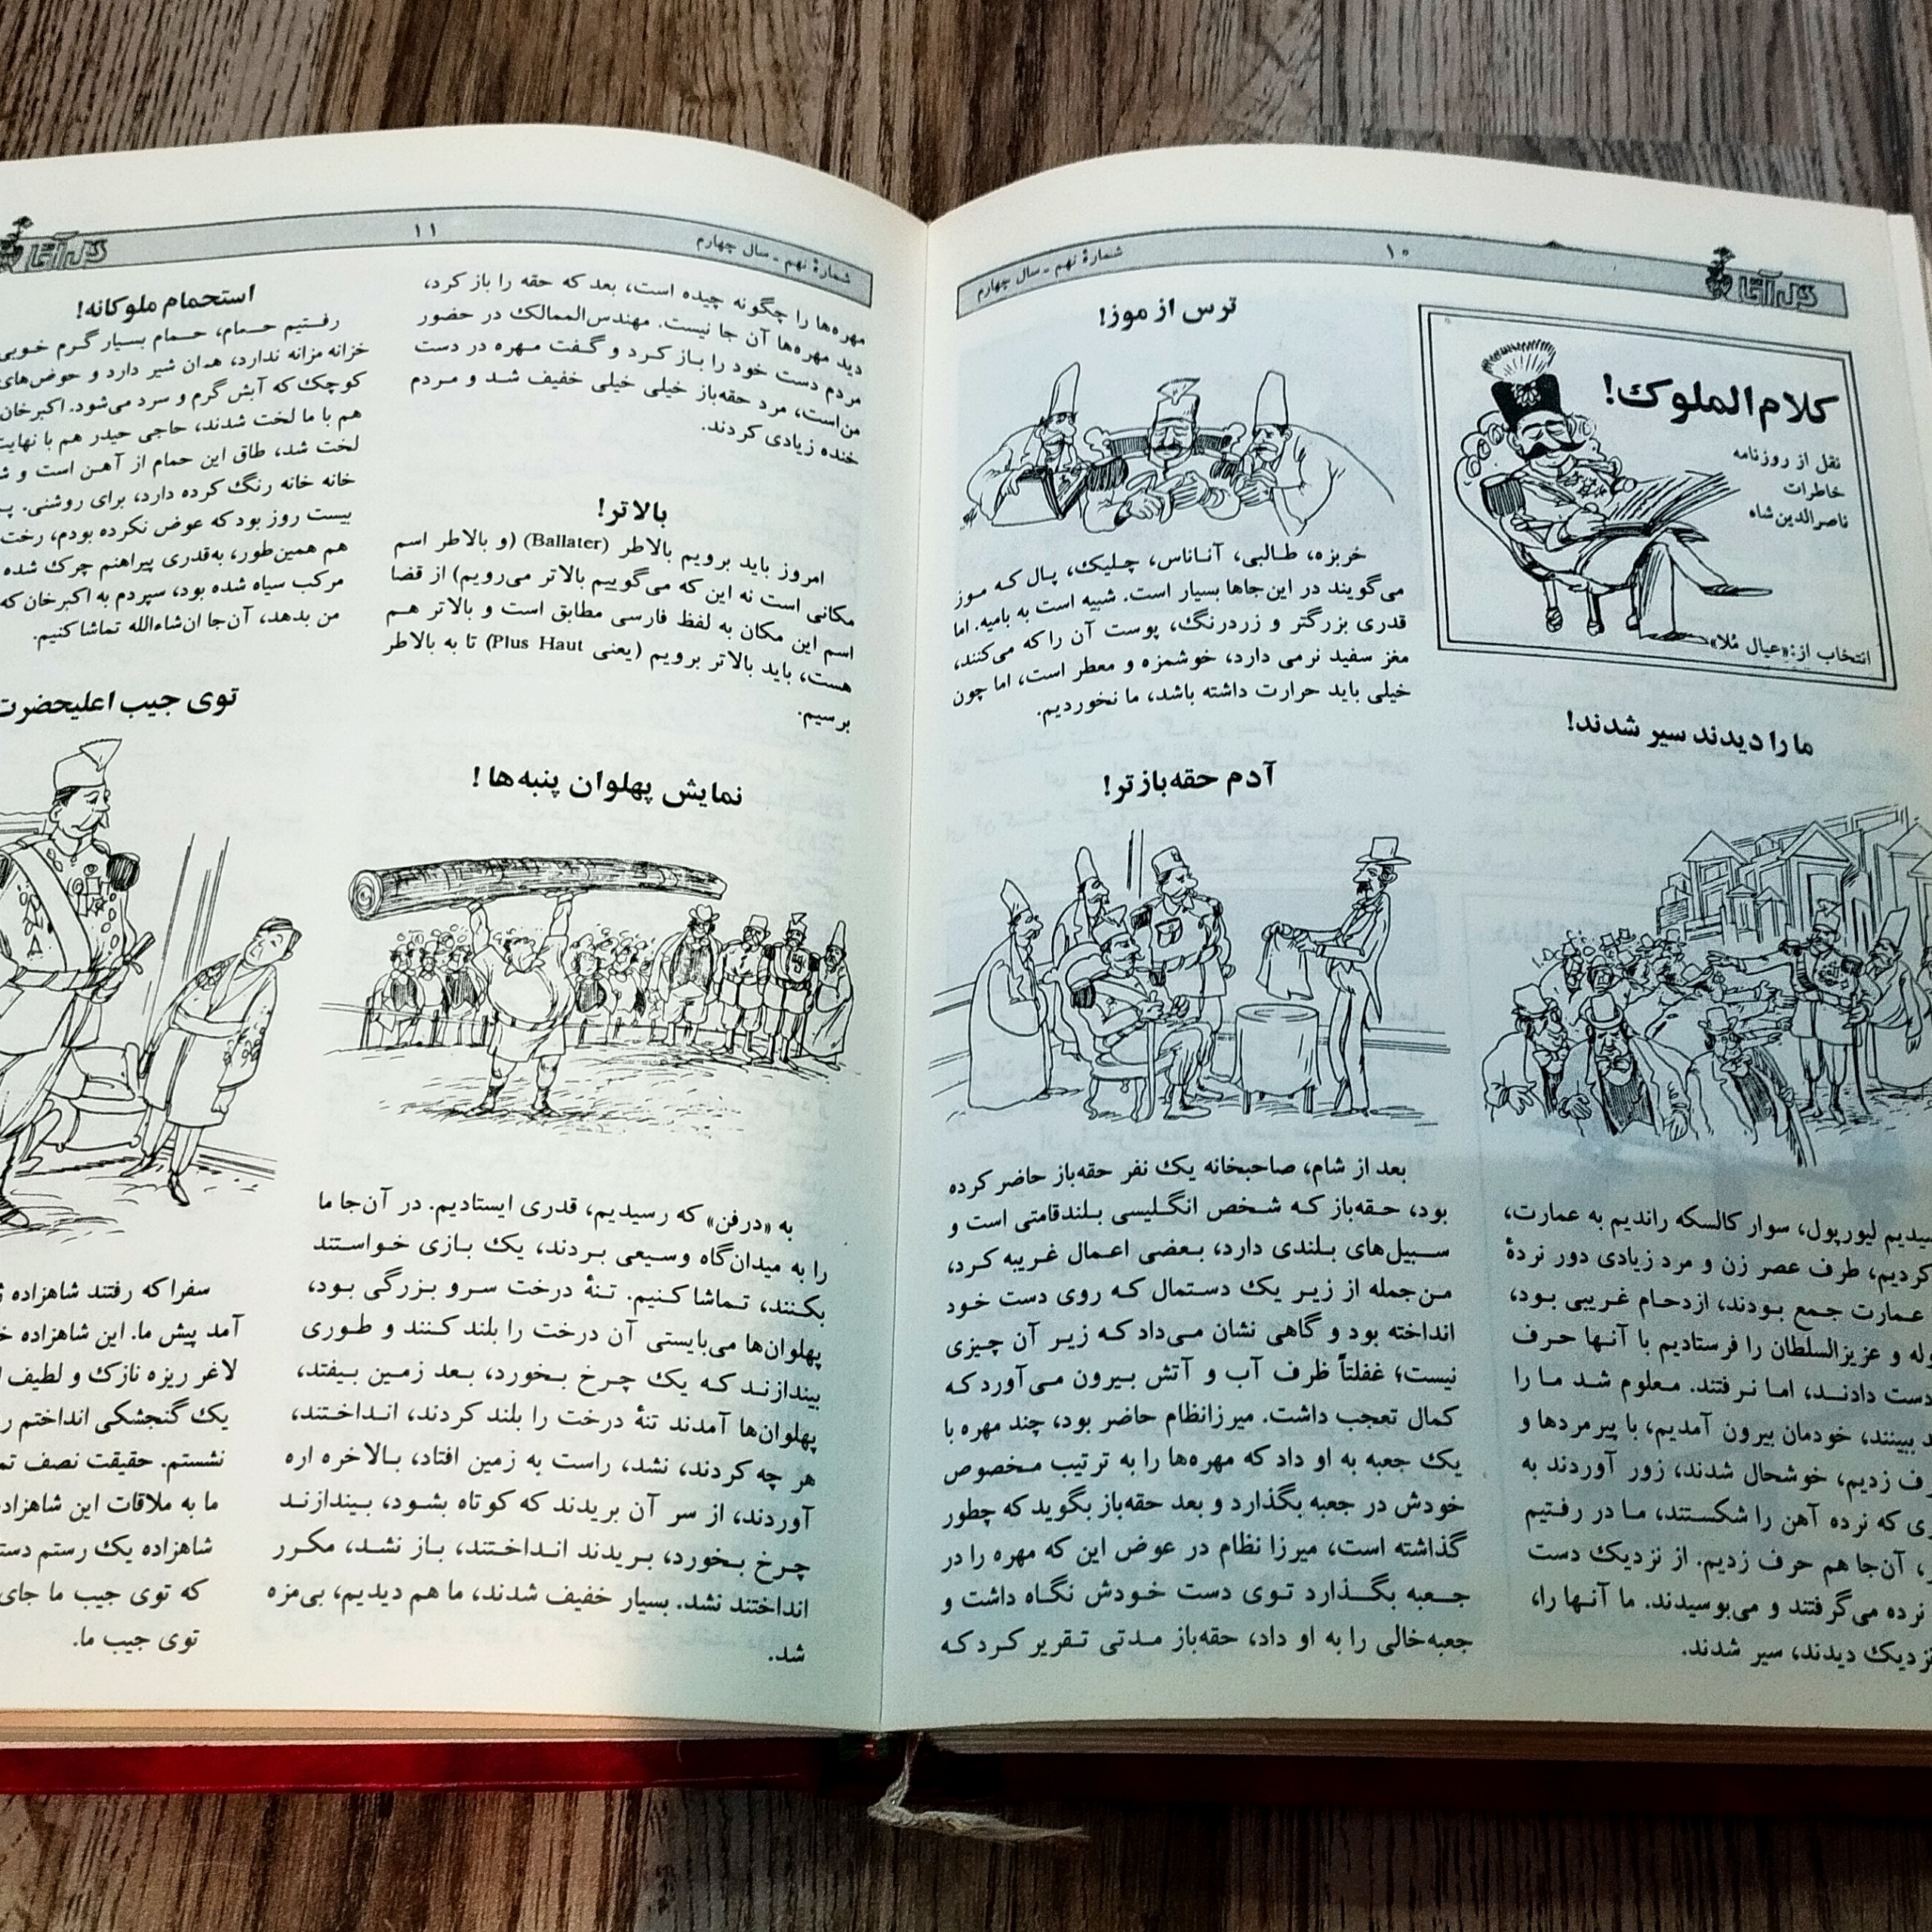 گل‌آقا
۱۰
شمارهٔ نهم - سال چهارم
کلام‌الملوک!
نقل از روزنامه
خاطرات
ناصرالدین‌شاه
انتخاب از: «عیال مُلا»
ما را دیدند سیر شدند!
لیورپول، سوار کالسکه راندیم به عمارت،
کردیم، طرف عصر زن و مرد زیادی دور نردهٔ
عمارت جمع بودند، ازدحام غریبی بود،
و عزیزالسلطان را فرستادیم با آنها حرف
دست دادند، اما نرفتند. معلوم شد ما را
ببینند، خودمان بیرون آمدیم، با پیرمردها و
زدیم، خوشحال شدند، زور آوردند به
که نرده آهن را شکستند، ما در رفتیم
آن‌جا هم حرف زدیم. از نزدیک دست
نرده می‌گرفتند و می‌بوسیدند. ما آنها را،
نزدیک دیدند، سیر شدند.
ترس از موز!
خربزه، طالبی، آناناس، چلیک، پال که موز
می‌گویند در این‌جاها بسیار است. شبیه است به بامیه. اما
قدری بزرگتر و زردرنگ، پوست آن را که می‌کنند،
مغز سفید نرمی دارد، خوشمزه و معطر است، اما چون
خیلی باید حرارت داشته باشد، ما نخوردیم.
آدم حقه‌بازتر!
بعد از شام، صاحبخانه یک نفر حقه‌باز حاضر کرده
بود، حقه‌باز که شخص انگلیسی بلندقامتی است و
سبیل‌های بلندی دارد، بعضی اعمال غریبه کرد،
من‌جمله از زیر یک دستمال که روی دست خود
انداخته بود و گاهی نشان می‌داد که زیر آن چیزی
نیست؛ غفلتاً ظرف آب و آتش بیرون می‌آورد که
کمال تعجب داشت. میرزانظام حاضر بود، چند مهره با
یک جعبه به او داد که مهره‌ها را به ترتیب مخصوص
خودش در جعبه بگذارد و بعد حقه‌باز بگوید که چطور
گذاشته است، میرزا نظام در عوض این که مهره را در
جعبه بگذارد توی دست خودش نگاه داشت و
جعبه‌خالی را به او داد، حقه‌باز مدتی تقریر کرد که
شمارهٔ نهم - سال چهارم
۱۱
گل‌آقا
مهره‌ها را چگونه چیده است، بعد که حقه را باز کرد،
دید مهره‌ها آن جا نیست. مهندس‌الممالک در حضور
مردم دست خود را باز کرد و گفت مهره در دست
من‌است، مرد حقه‌باز خیلی خیلی خفیف شد و مردم
خنده زیادی کردند.
بالاتر!
امروز باید برویم بالاطر (Ballater) (و بالاطر اسم
مکانی است نه این که می‌گوییم بالاتر می‌رویم) از قضا
اسم این مکان به لفظ فارسی مطابق است و بالاتر هم
هست، باید بالاتر برویم (یعنی Plus Haut) تا به بالاطر
برسیم.
نمایش پهلوان پنبه‌ها!
به «درفن» که رسیدیم، قدری ایستادیم. در آن‌جا ما
را به میدان‌گاه وسیعی بردند، یک بازی خواستند
بکنند، تماشا کنیم. تنهٔ درخت سرو بزرگی بود،
پهلوان‌ها می‌بایستی آن درخت را بلند کنند و طوری
بیندازند که یک چرخ بخورد، بعد زمین بیفتد،
پهلوان‌ها آمدند تنهٔ درخت را بلند کردند، انداختند،
هر چه کردند، نشد، راست به زمین افتاد، بالاخره اره
آوردند، از سر آن بریدند که کوتاه بشود، بیندازند
چرخ بخورد، بریدند انداختند، باز نشد، مکرر
انداختند نشد. بسیار خفیف شدند، ما هم دیدیم، بی‌مزه
شد.
استحمام ملوکانه!
رفتیم حمام، حمام بسیار گرم خوبی
خزانه مزانه ندارد، همان شیر دارد و حوض‌های
کوچک که آبش گرم و سرد می‌شود. اکبرخان
هم با ما لخت شدند، حاجی حیدر هم با نهایت
لخت شد، طاق این حمام از آهن است و
خانه خانه رنگ کرده دارد، برای روشنی.
بیست روز بود که عوض نکرده بودم، رخت
هم همین‌طور، به‌قدری پیراهنم چرک شده
مرکب سیاه شده بود، سپردم به اکبرخان که
من بدهد، آن‌جا ان‌شاءالله تماشا کنیم.
توی جیب اعلیحضرت
سفرا که رفتند شاهزاده
آمد پیش ما. این شاهزاده
لاغر ریزه نازک و لطیف
یک گنجشکی انداختم
نشستم. حقیقت نصف
ما به ملاقات این شاهزاده
شاهزاده یک رستم
که توی جیب ما جای
توی جیب ما.